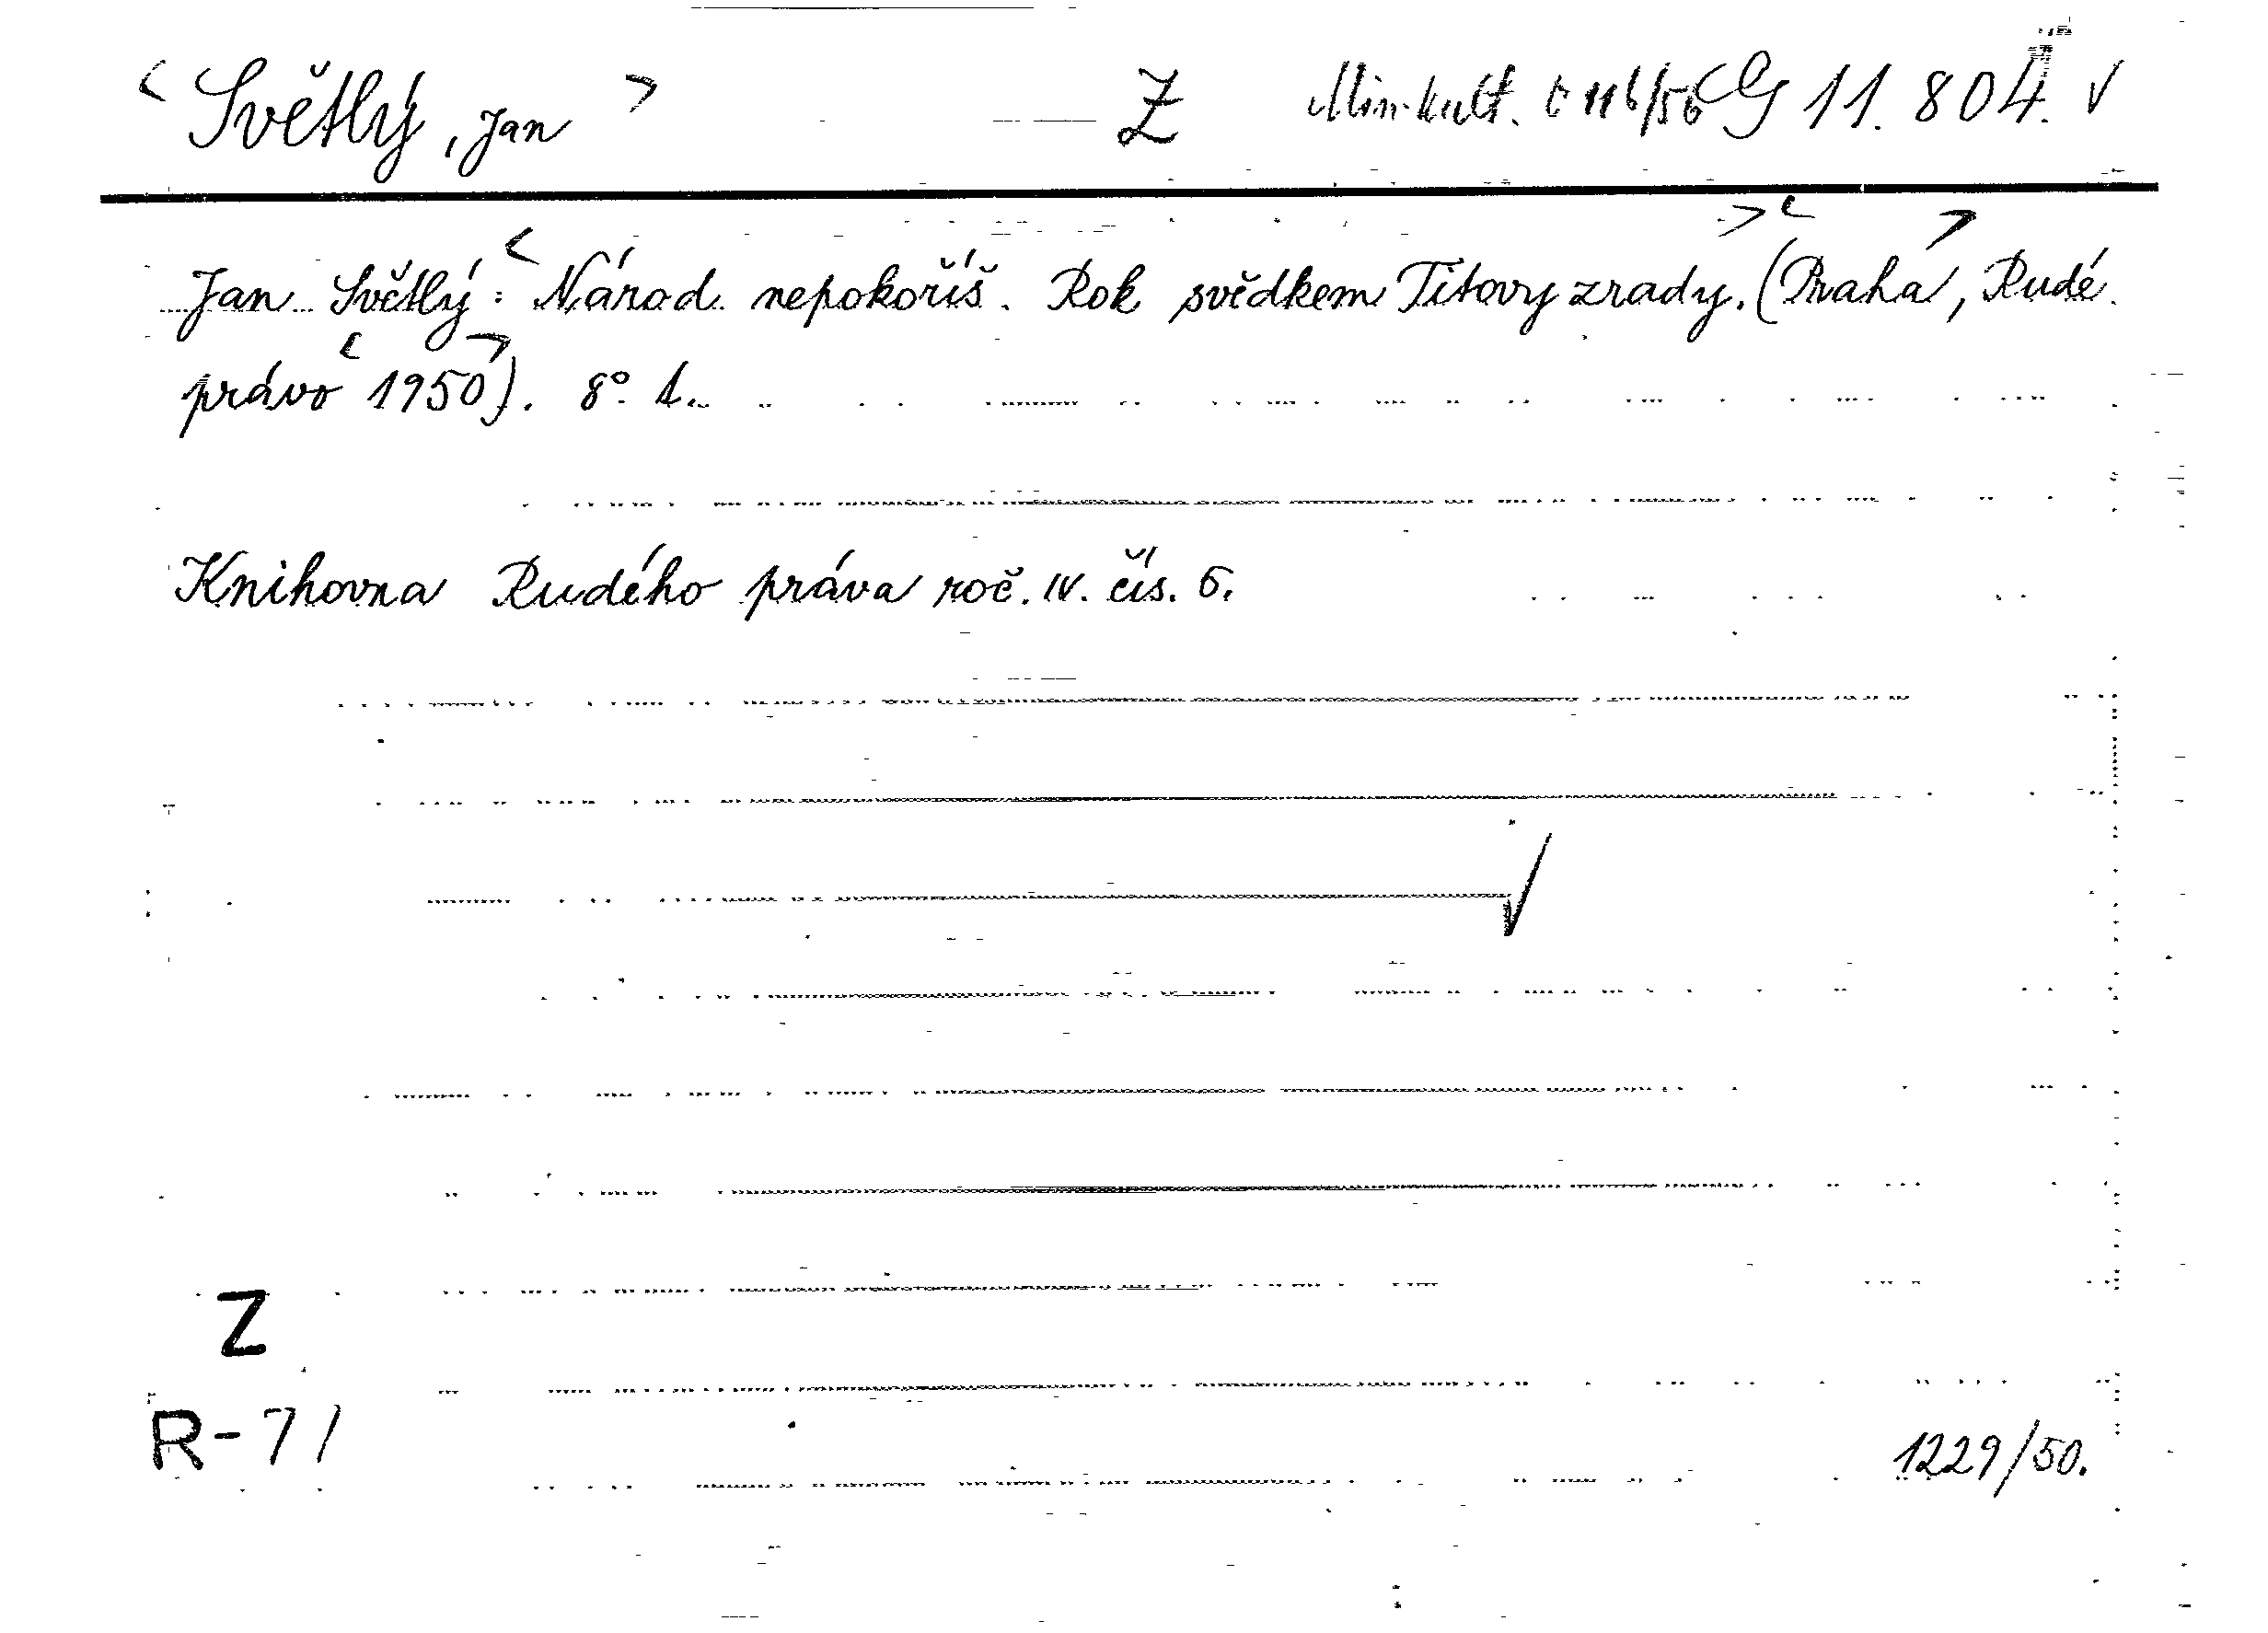 <Světlý, Jan> Z Min. kult. č 116/56 G 11.804. √
Jan Světlý: <Národ nepokoříš. Rok svědkem Titovy zrady.> (<Praha>, Rudé
právo <1950>). 8° 1.
Knihovna Rudého práva roč. IV. čís. 5.
√
Z
R-71
1229/50.